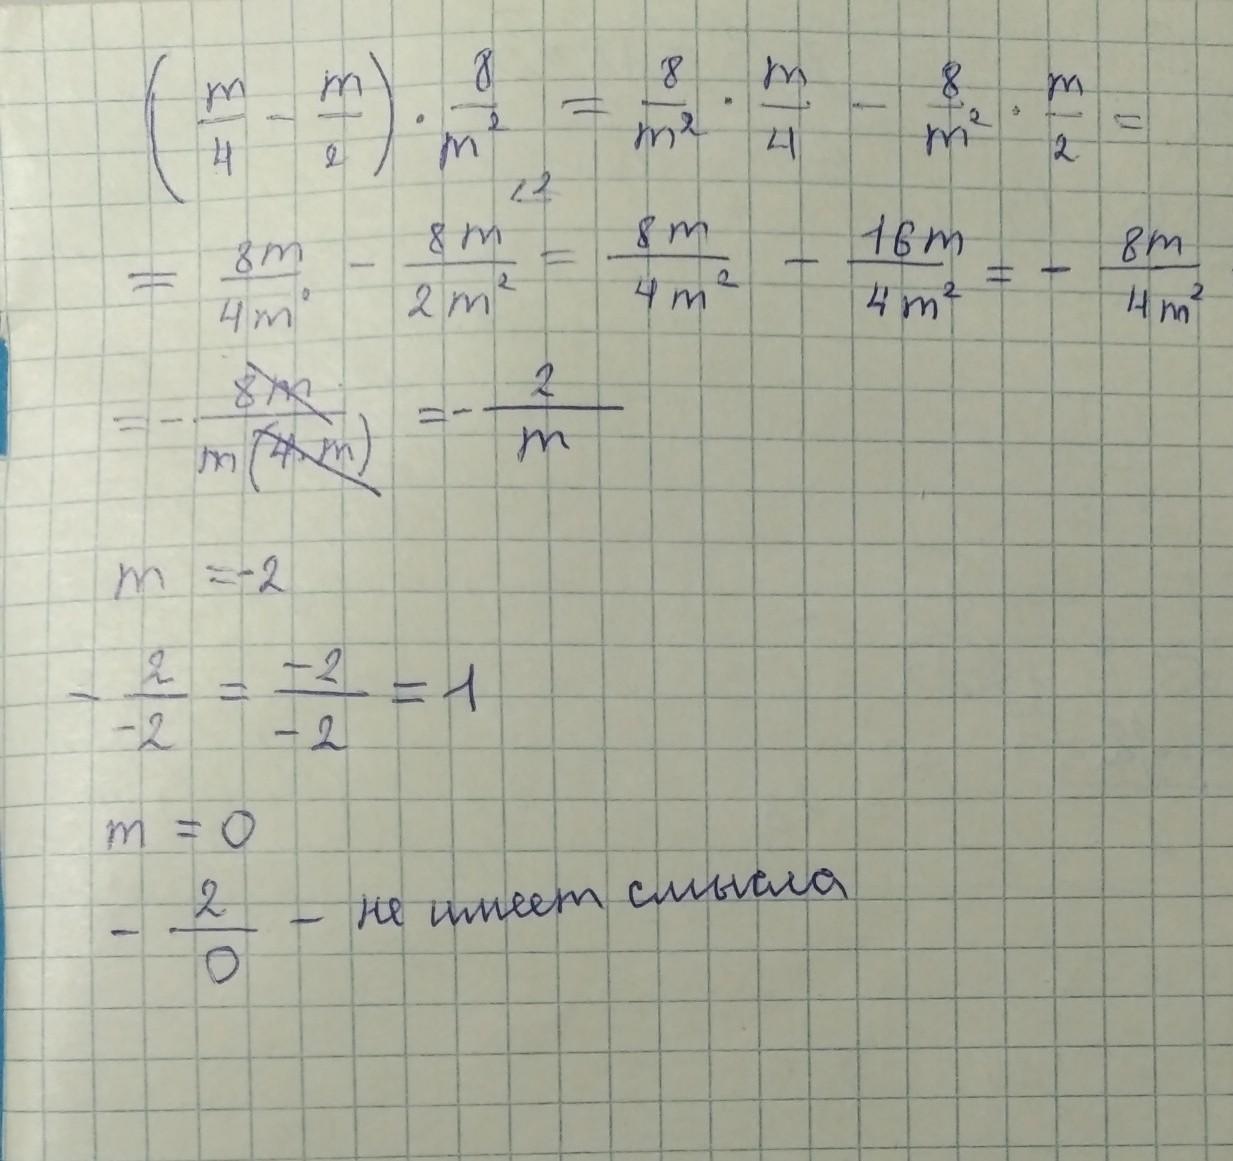 (m/4 - m/2) · 8/m² = 8/m² · m/4 - 8/m² · m/2 =
= 8m/4m² - 8m/2m² ·2 = 8m/4m² - 16m/4m² = - 8m/4m²
= - 8m/m(4·m) = - 2/m
m = -2
- 2/-2 = -2/-2 = 1
m = 0
- 2/0 - не имеет смысла